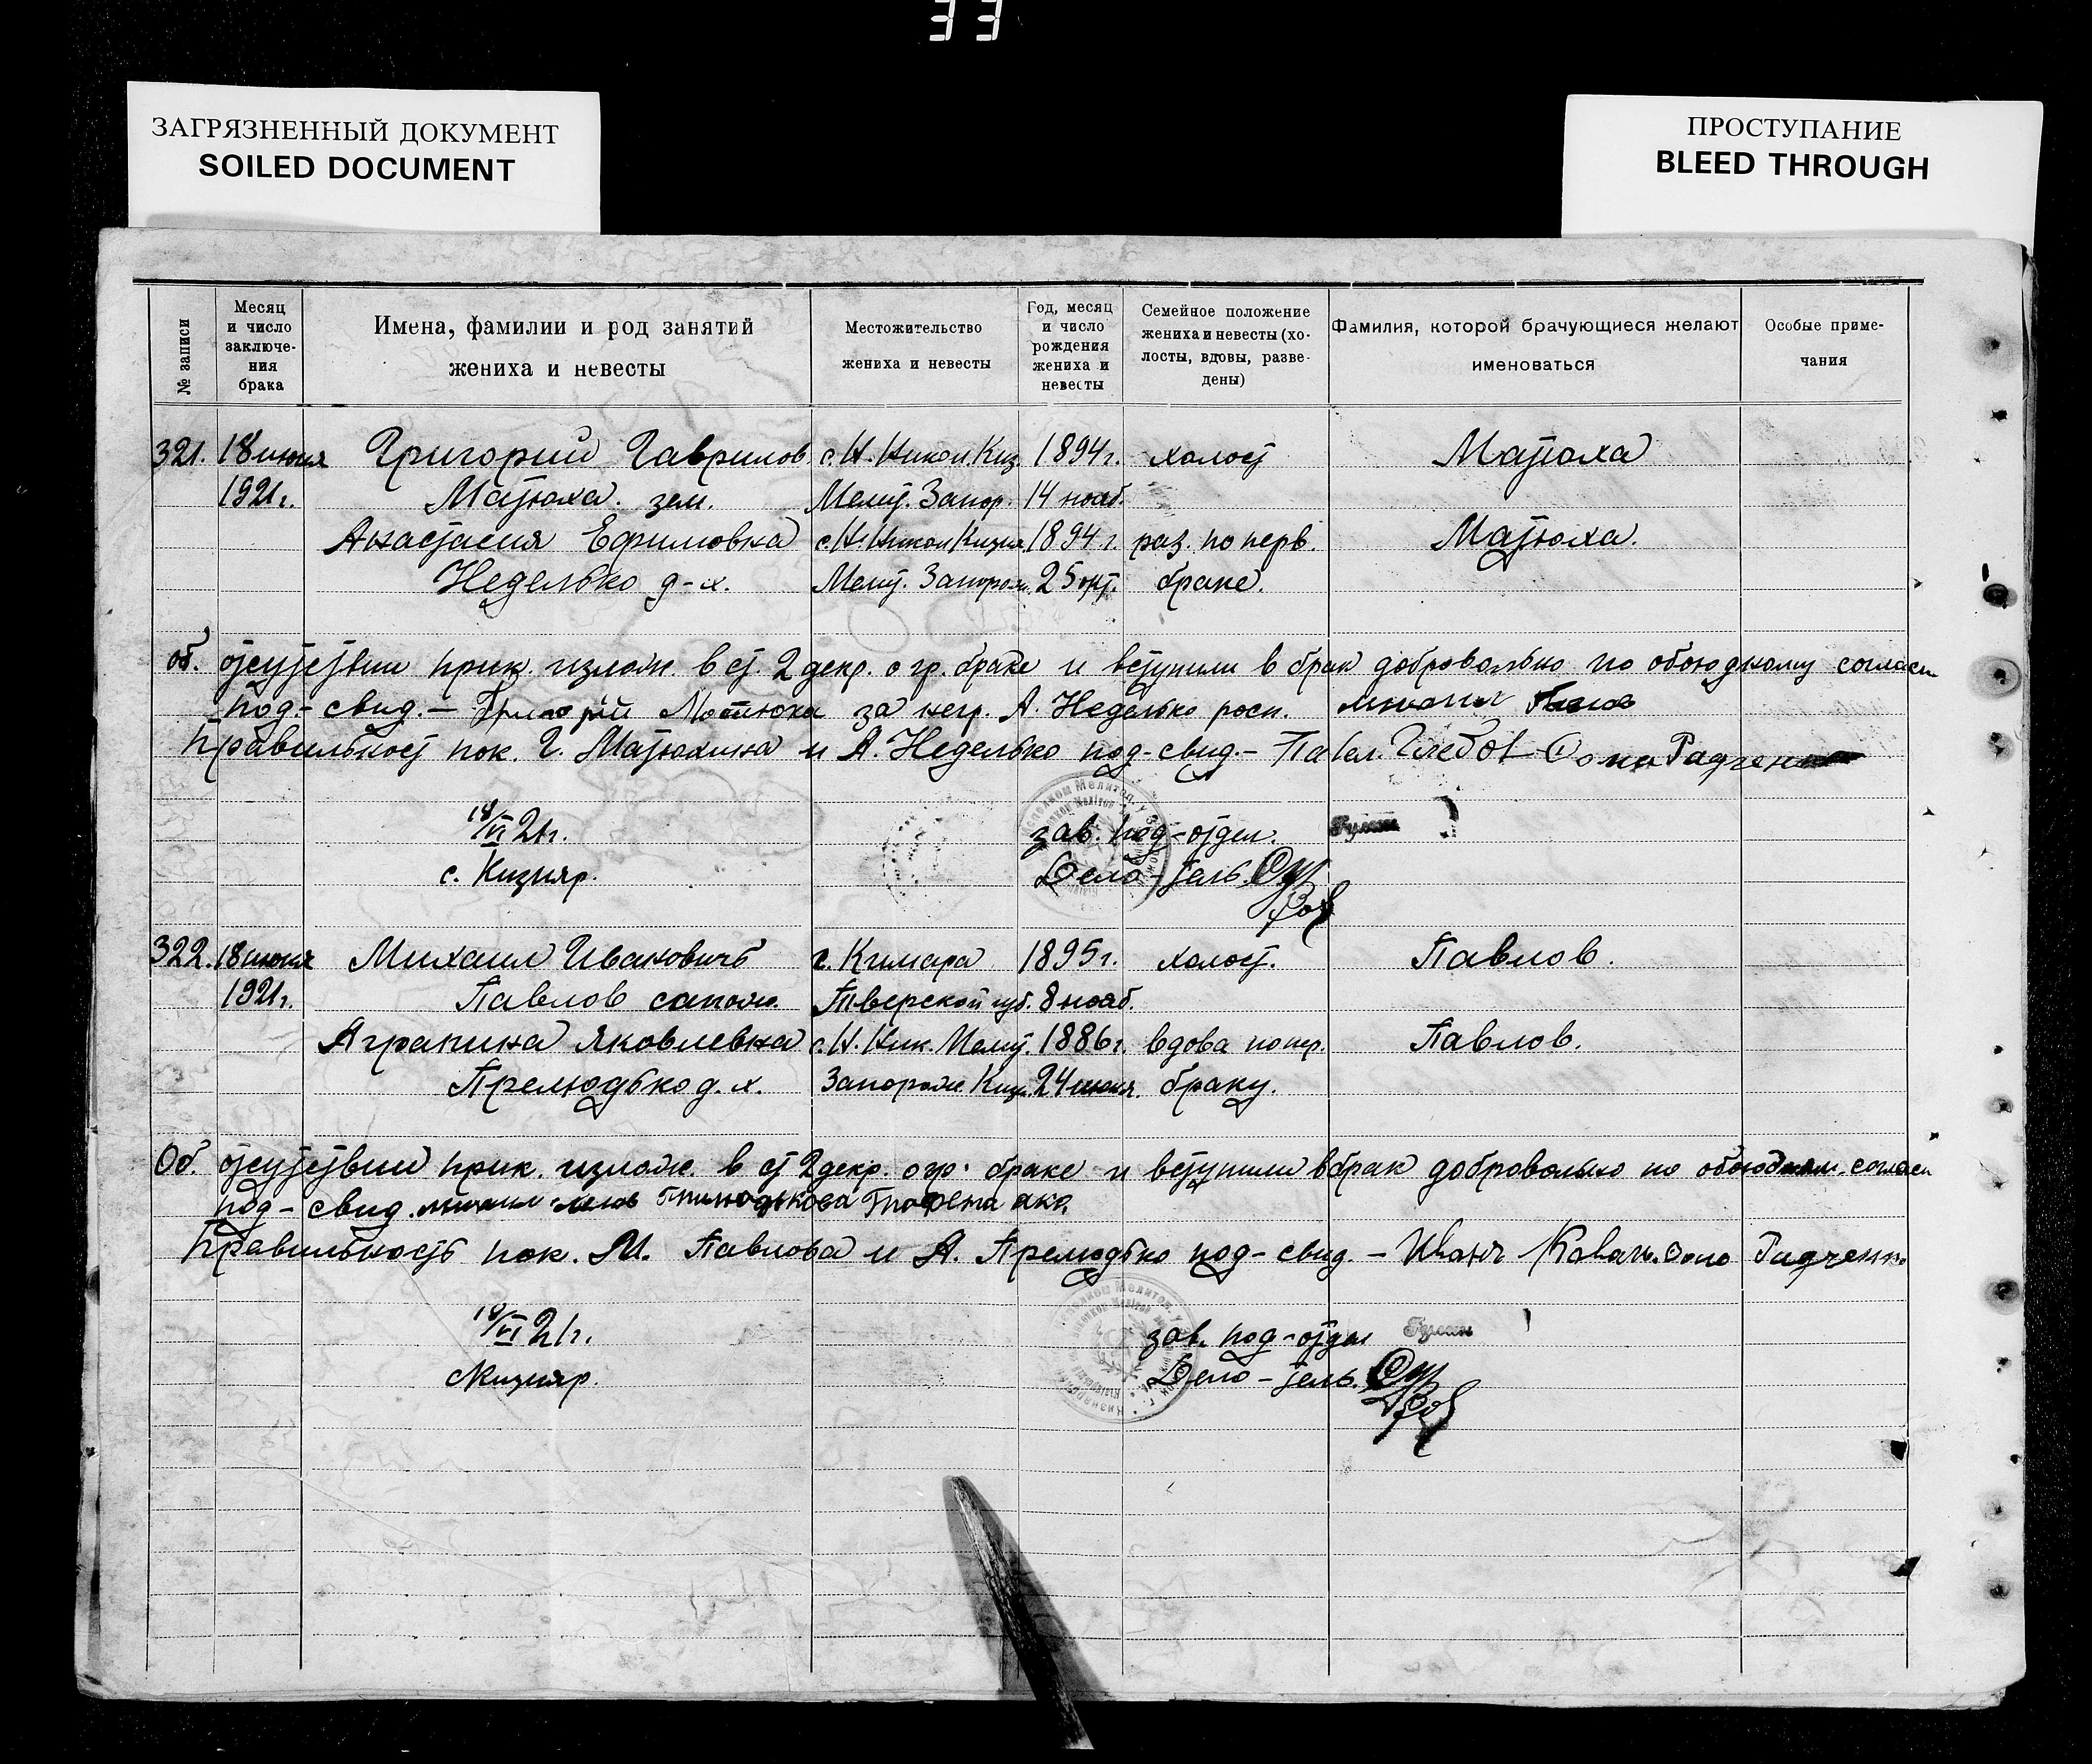 33
ЗАГРЯЗНЕННЫЙ ДОКУМЕНТ
SOILED DOCUMENT
ПРОСТУПАНИЕ
BLEED THROUGH
№ записи
Месяц и число заключе-ния брака
Имена, фамилии и род занятий жениха и невесты
Местожительство жениха и невесты
Год, месяц и число рождения жениха и невесты
Семейное положение жениха и невесты (хо-лосты, вдовы, разве-дены)
Фамилия, которой брачующиеся желают именоваться
Особые приме-чания
321. 18 июня Григорий Гаврилов с. Н. Никол. Киз. 1894 г. холост Матюха
1921 г. Матюха. зем. Мелит. Запор. 14 нояб.
Анастасия Ефимовна с. Н. Никол Кизия 1894 г. раз. по перв. Матюха.
Неделько д-х. Мелит. Запорож. 25 окт. браке.
об. отсутствии прик. излож. в ст. 2 декр. о гр. браке и вступили в брак добровольно по обоюдному согласи
под.- свид. - Григорий Матюха за негр. А. Неделько росп.
Правильност пок. Г. Матюхина и А. Неделько под-свид. - Павел. Глебов Фома Радченко
18/VI 21 г. зав. под-отдел.
с. Кизияр. Дело-тель.
322. 18 июня Михаил Ивановичъ с. Кимара 1895 г. холост. Павлов.
1921 г. Павлов сапож. Тверской губ. 8 нояб.
Аграпина Яковлевна с. Н. Ник. Мелит. 1886 г. вдова по пер. Павлов.
Прелюдько д. х. Запорож. Киз. 24 июня. браку.
Об. отсутствии прик. излож. в ст 2 декр. о гр. браке и вступили в брак добровольно по обоюдном. согласи
под - свид.
Правильность пок. М. Павлова и А. Прелюдько под-свид. - Иванъ Ковач. Фома Радченко
18/VI 21 г. зав. под-отдел
с Кизияр. Дело-тель.